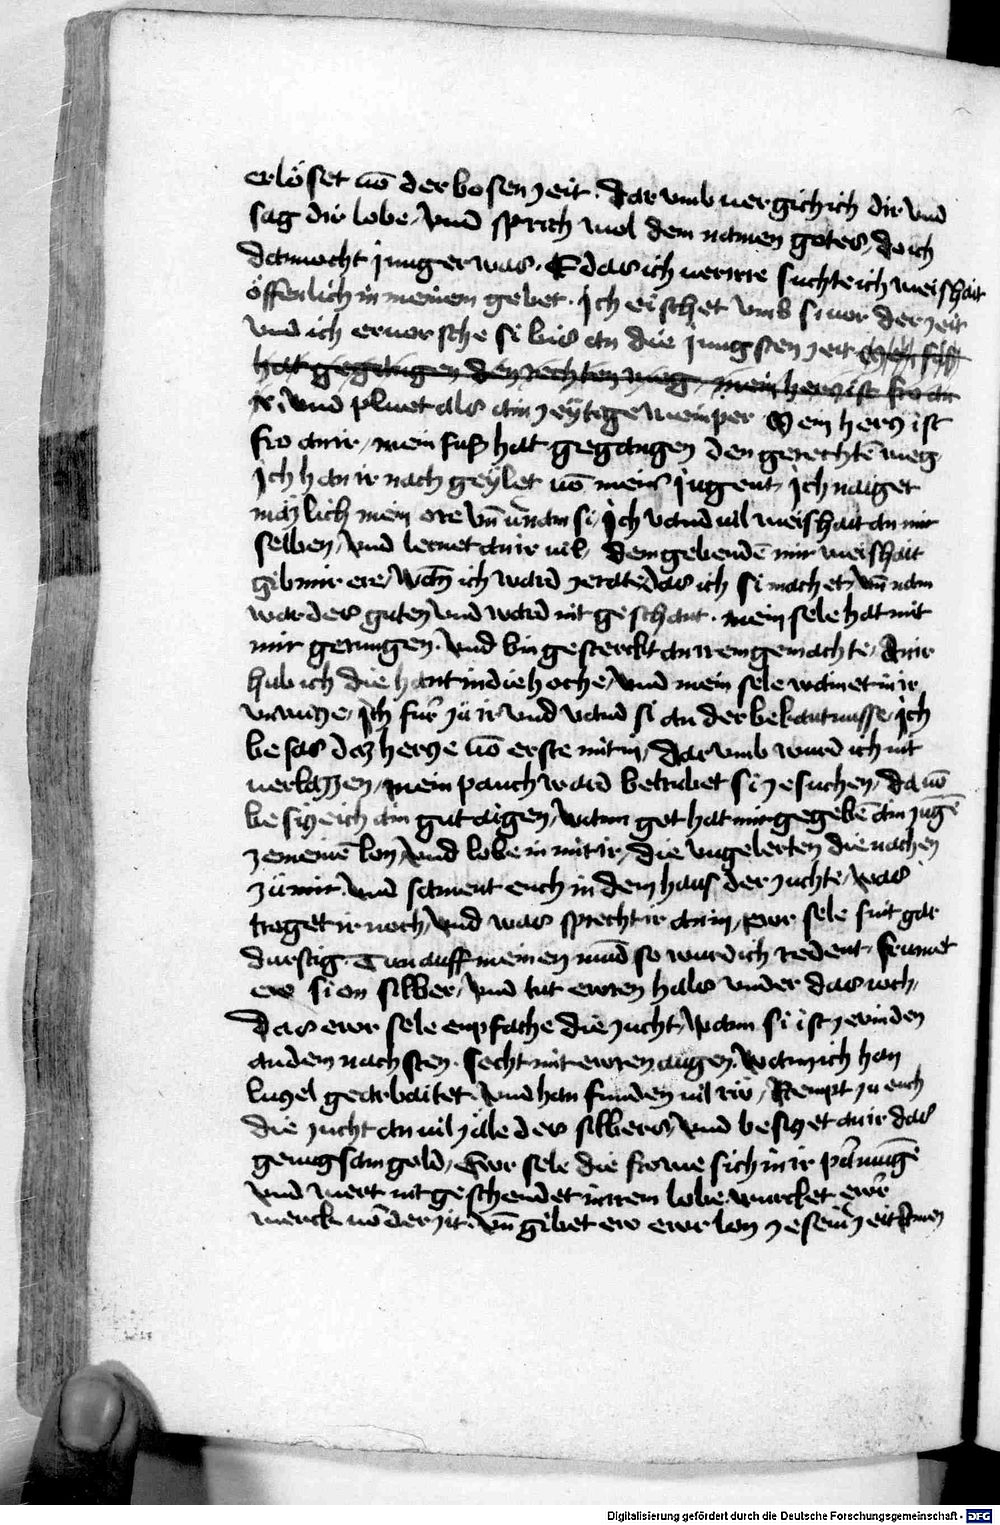 erlöset uō der bosen zeit. Dar vmb uergich ich dir vnd
sag dir lobe, vnd sprich wol dem namen gotes, do ich
dannocht junger was. E das ich uerirre suchte ich weishait
öffenlich in meinem gebet. Ich eischet vmb si uor der zeit
vnd ich eruorsche si bis an die jungsten zeit Mein fuß
hat gegangen den rechten weg, mein hercz ist fro an
ir, vnd pluet als ain zeytige weinper Mein hercz ist
fro an ir, mein fuß hat gegangen den gerechtē weg,
Ich han ir nach geylet uō meiner jugent, Ich naiget
mäzlich mein ore vn̄ u̓nam si, Ich vand uil weishait an mir
selben, vnd lernet an ir uil, dem gebendē mir weishait
gib mir ere, Wan̄ ich ward zerate das ich si machet, vn̄ nam
war des guten vnd ward nit geschant. mein sele hat mit
mir gerungen. vnd bin gesterckt an irem gemachte, An ir
hub ich die hant in die hoche, vnd mein sele wainet in ir
vnwicze, Ich fur zü ir vnd vand si an der bekantnusse, Ich
besas daz hercze uō erste mit in, dar vmb wurd ich nit
uerlazzen, mein pauch ward betrubet si ze suchen, da uō
besicze ich ain gut aigen, wann got hat mir gegebē ain zūgē
ze meinē lon, vnd lobe in mit ir, die vngelerten die nachen
zü mir vnd sament euch in dem haus der zuchte, was
traget ir noch, vnd was sprecht ir an im, ewr sele sint gar
durstig. Tun auff meinen mūd so wurd ich redent. frumet
ew si on silber, vnd tut ewren hals vnder das ioch,
das ewr sele enpfache die zucht, wann si ist ze uinden
an dem nachsten. secht mit ewren augen. wann ich han
luczel gearbaitet. vnd han funden uil rüe, Nempt zu euch
die zucht an uil zäle des silbers, vnd besiczet an ir das
genugsam gold, Ewr sele die frowe sich in ir
vnd wert nit geschendet in irem lobe. wurcket ewr
werck uō der zit. vn̄ gibet ew ewr lon ze seiner zeit Amen
Digitalisierung gefördert durch die Deutsche Forschungsgemeinschaft - DFG